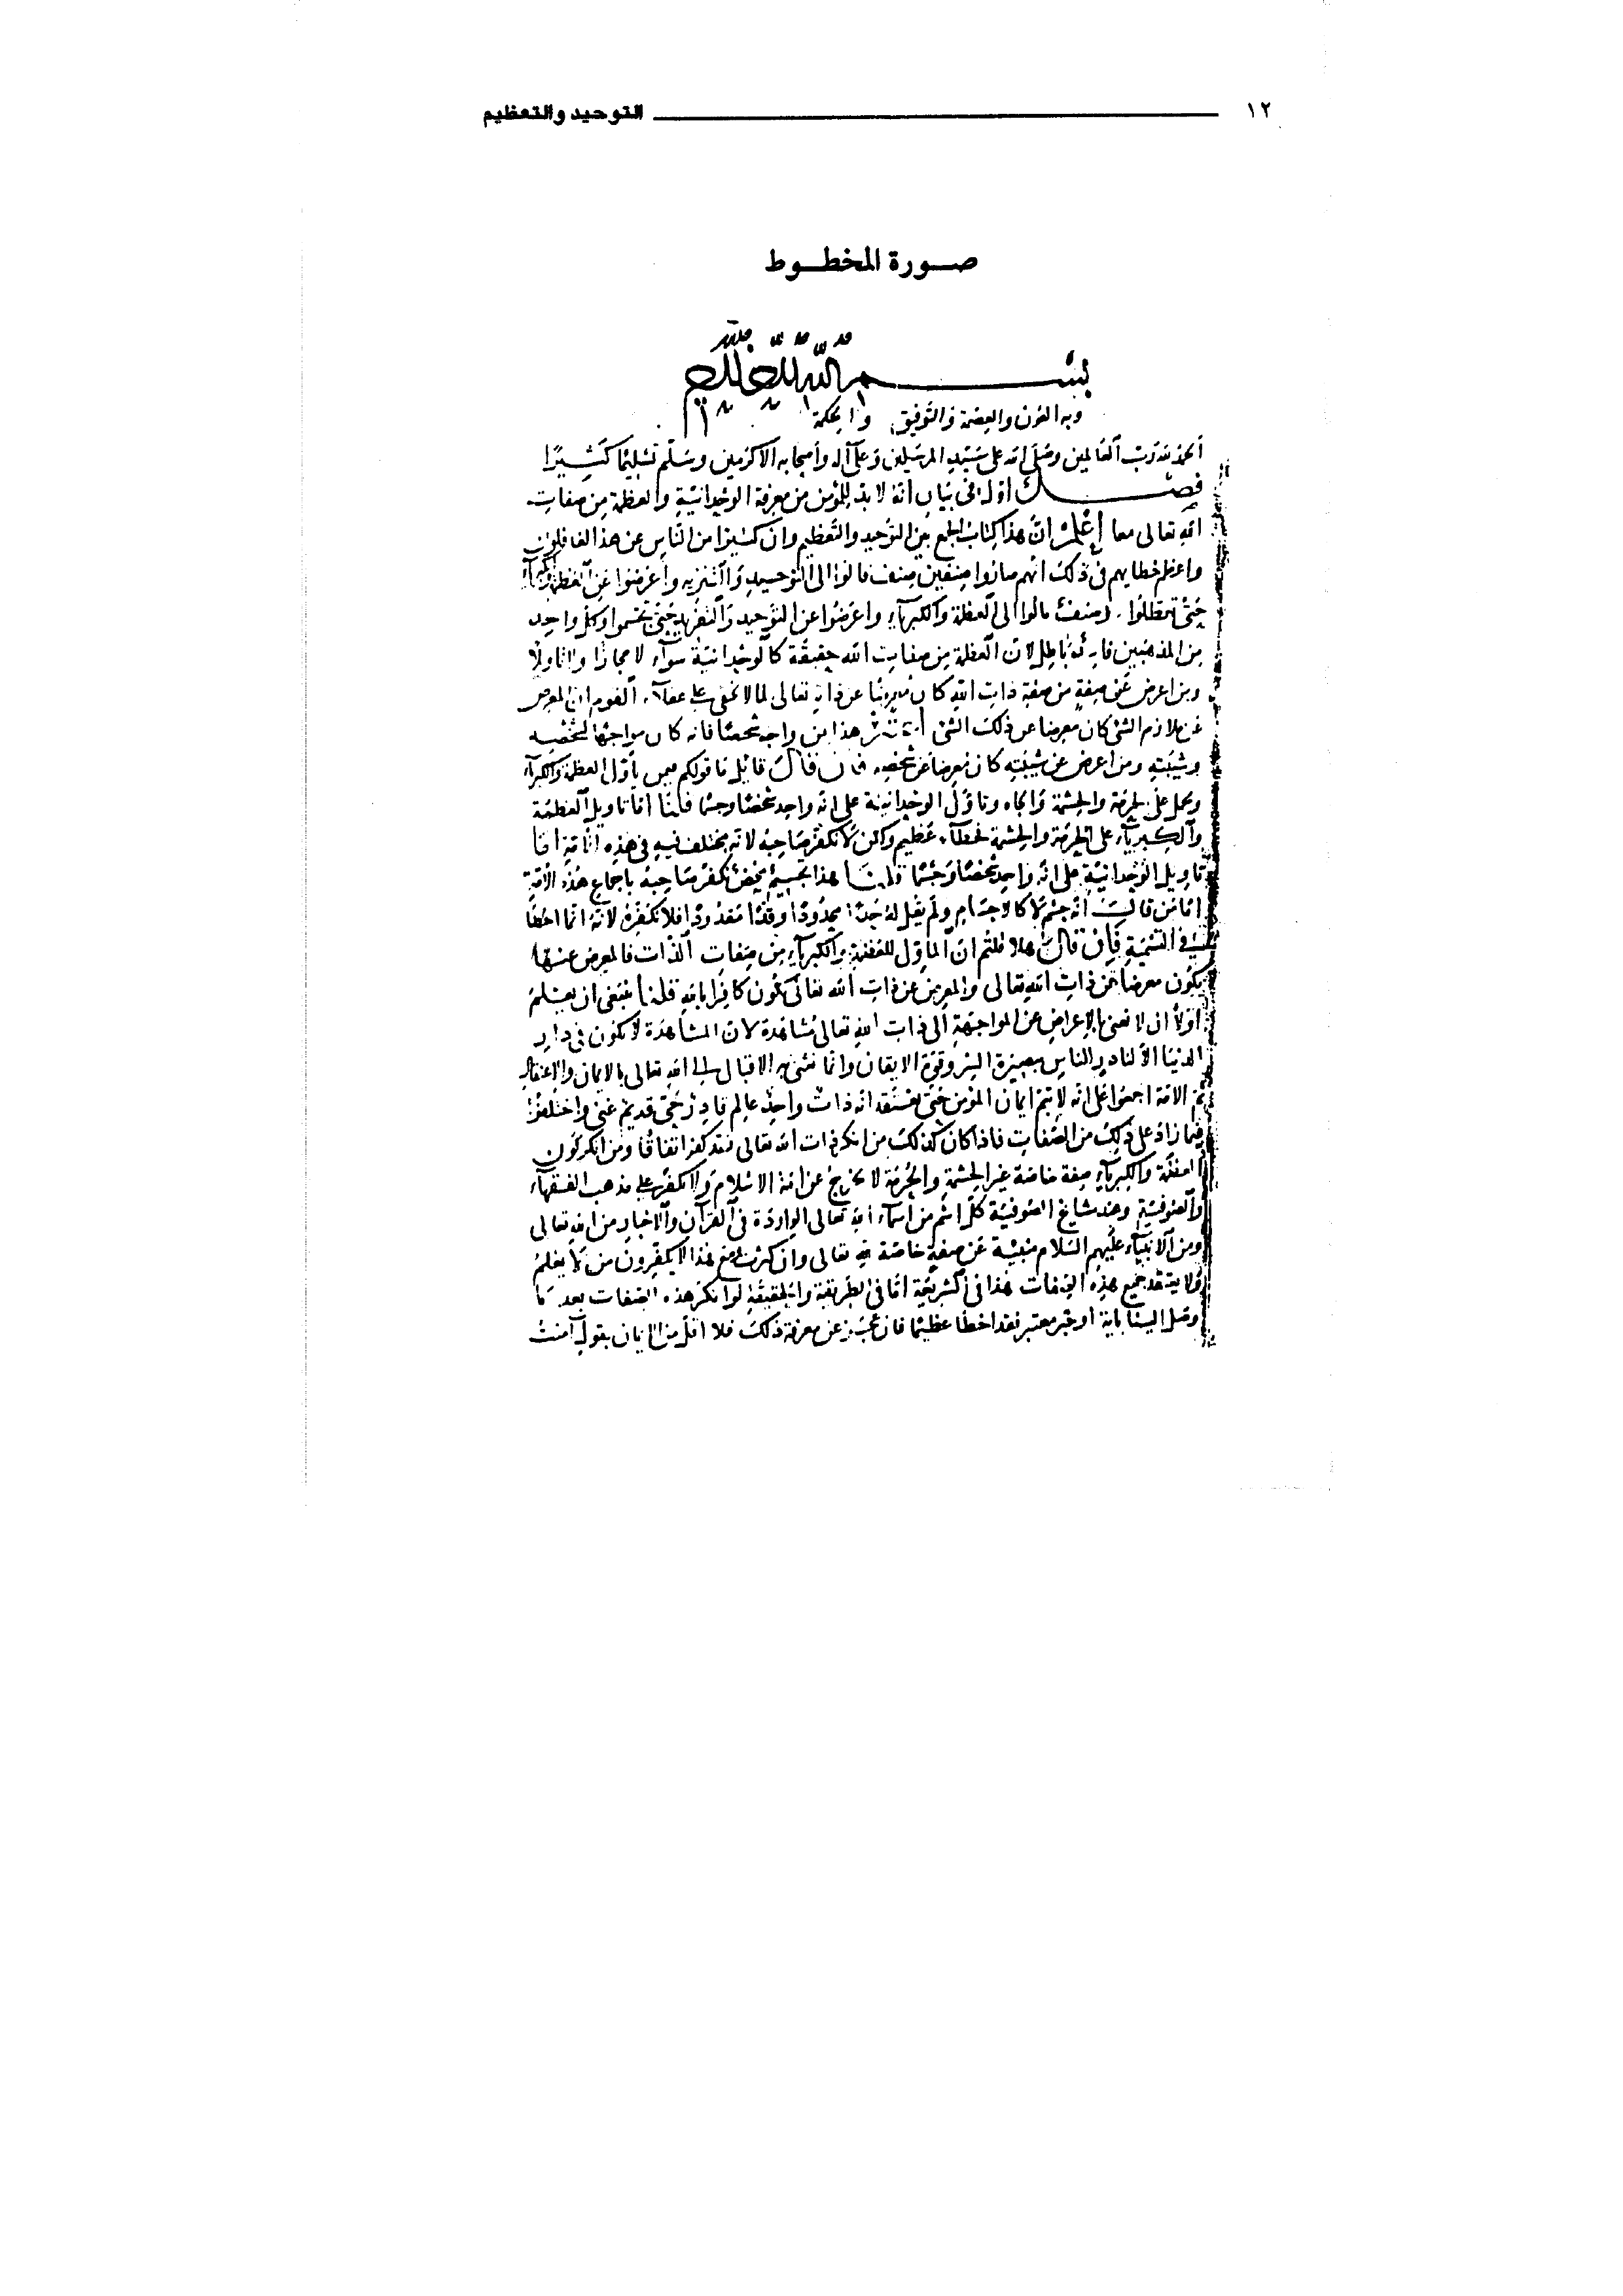 ١٢ التوحيد والتعظيم
صورة المخطوط
بسم الله الرحمن الرحيم
وبه العون والعصمة والتوفيق والحكمة
الحمد لله رب العالمين وصلى الله على سيد المرسلين وعلى آله وأصحابه الاكرمين وسلم تسليما كثيرا
فصل اول في بيان انه لا بد للمؤمن من معرفة الوحدانية والعظمة من صفات
الله تعالى معا إعلم ان هذا كتاب الجمع بين التوحيد والتعظيم وان كثيرا من الناس عن هذا لغافلون
واعظم خطايهم في ذلك انهم صاروا صنفين صنف مالوا الى التوحيد والتنزيه وأعرضوا عن العظمة والكبرياء
حتى تعطلوا وصنف مالوا الى العظمة والكبرياء واعرضوا عن التوحيد والتفريد حتى تجسموا وكل واحد
من المذهبين فايه باطل لان العظمة من صفات الله حقيقة كالوحدانية سواء لا مجازا ولا تاويلا
ومن اعرض عن صفة من صفة ذات الله كان معرضا عن ذات تعالى لما لا يخفى على عقلاء القوم ان المعرض
عن ملازم الشئ كان معرضا عن ذلك الشئ هذا من واجه شخصا فانه كان مواجها لشخصه
وشيبته ومن اعرض عن شيبته كان معرضا عن شخصه فان قال قائل ما قولكم فيمن ياول العظمة والكبرياء
ويحمل على الحرمة والحشمة والجاه وتاول الوحدانية على انه واحد شخصا وجسما قلنا اما تاويل العظمة
والكبرياء على الحرمة والحشمة فخطاء عظيم ولكن لا نكفر صاحبه لانه مختلف فيه في هذه الامة اما
تاويل الوحدانية على انه واحد شخصا وجسما قلنا هذا تجسيم محض نكفر صاحبه باجماع هذه الامة
اما من قال انه جسم لا كالاجسام ولم يقل له حدا محدودا وقدا مقدودا فلا نكفره لانه انما اخطا
في التسمية فإن قال هلا قلتم ان الماول للعظمة والكبرياء من صفات الذات فالمعرض عنها
يكون معرضا عن ذات الله تعالى والمعرض عن ذات الله تعالى يكون كافرا بالله قلنا ينبغي ان يعلم
اولا ان لا نعني بالاعراض عن المواجهة الى ذات الله تعالى مشاهدة لان المشاهدة لا تكون في دار
الدنيا الا لنادر الناس ببصيرة السر وقوة الايقان وانما نعني به الاقبال الى الله تعالى بالايمان والاعتقاد
ثم الامة اجمعوا على انه لا يتم ايمان المؤمن حتى يعتقد انه ذات واحد عالم قادر حي قديم غني واختلفوا
فيما زاد على ذلك من الصفات فاذا كان كذلك من انكر ذات الله تعالى فقد كفر اتفاقا ومن انكر كون
العظمة والكبرياء صفة خاصة غير الحشمة والحرمة لا يخرج عن امة الاسلام ولا نكفره على مذهب الفقهاء
والصوفية وعند مشايخ الصوفية كل اسم من اسماء الله تعالى الواردة في القرآن والاخبار من الله تعالى
ومن الانبياء عليهم السلام منبئة عن صفة خاصة لله تعالى وان كثرت مع هذا لا يكفرون من لا يعلم
ولا يعتقد جميع هذه الصفات هذا في الشريعة اما في الطريقة والحقيقة لو انكر هذه الصفات بعد ما
وصل الينا باية او خبر معتبر فقد اخطا عظيما فان عجز عن معرفة ذلك فلا اقل من الايمان بقول آمنت